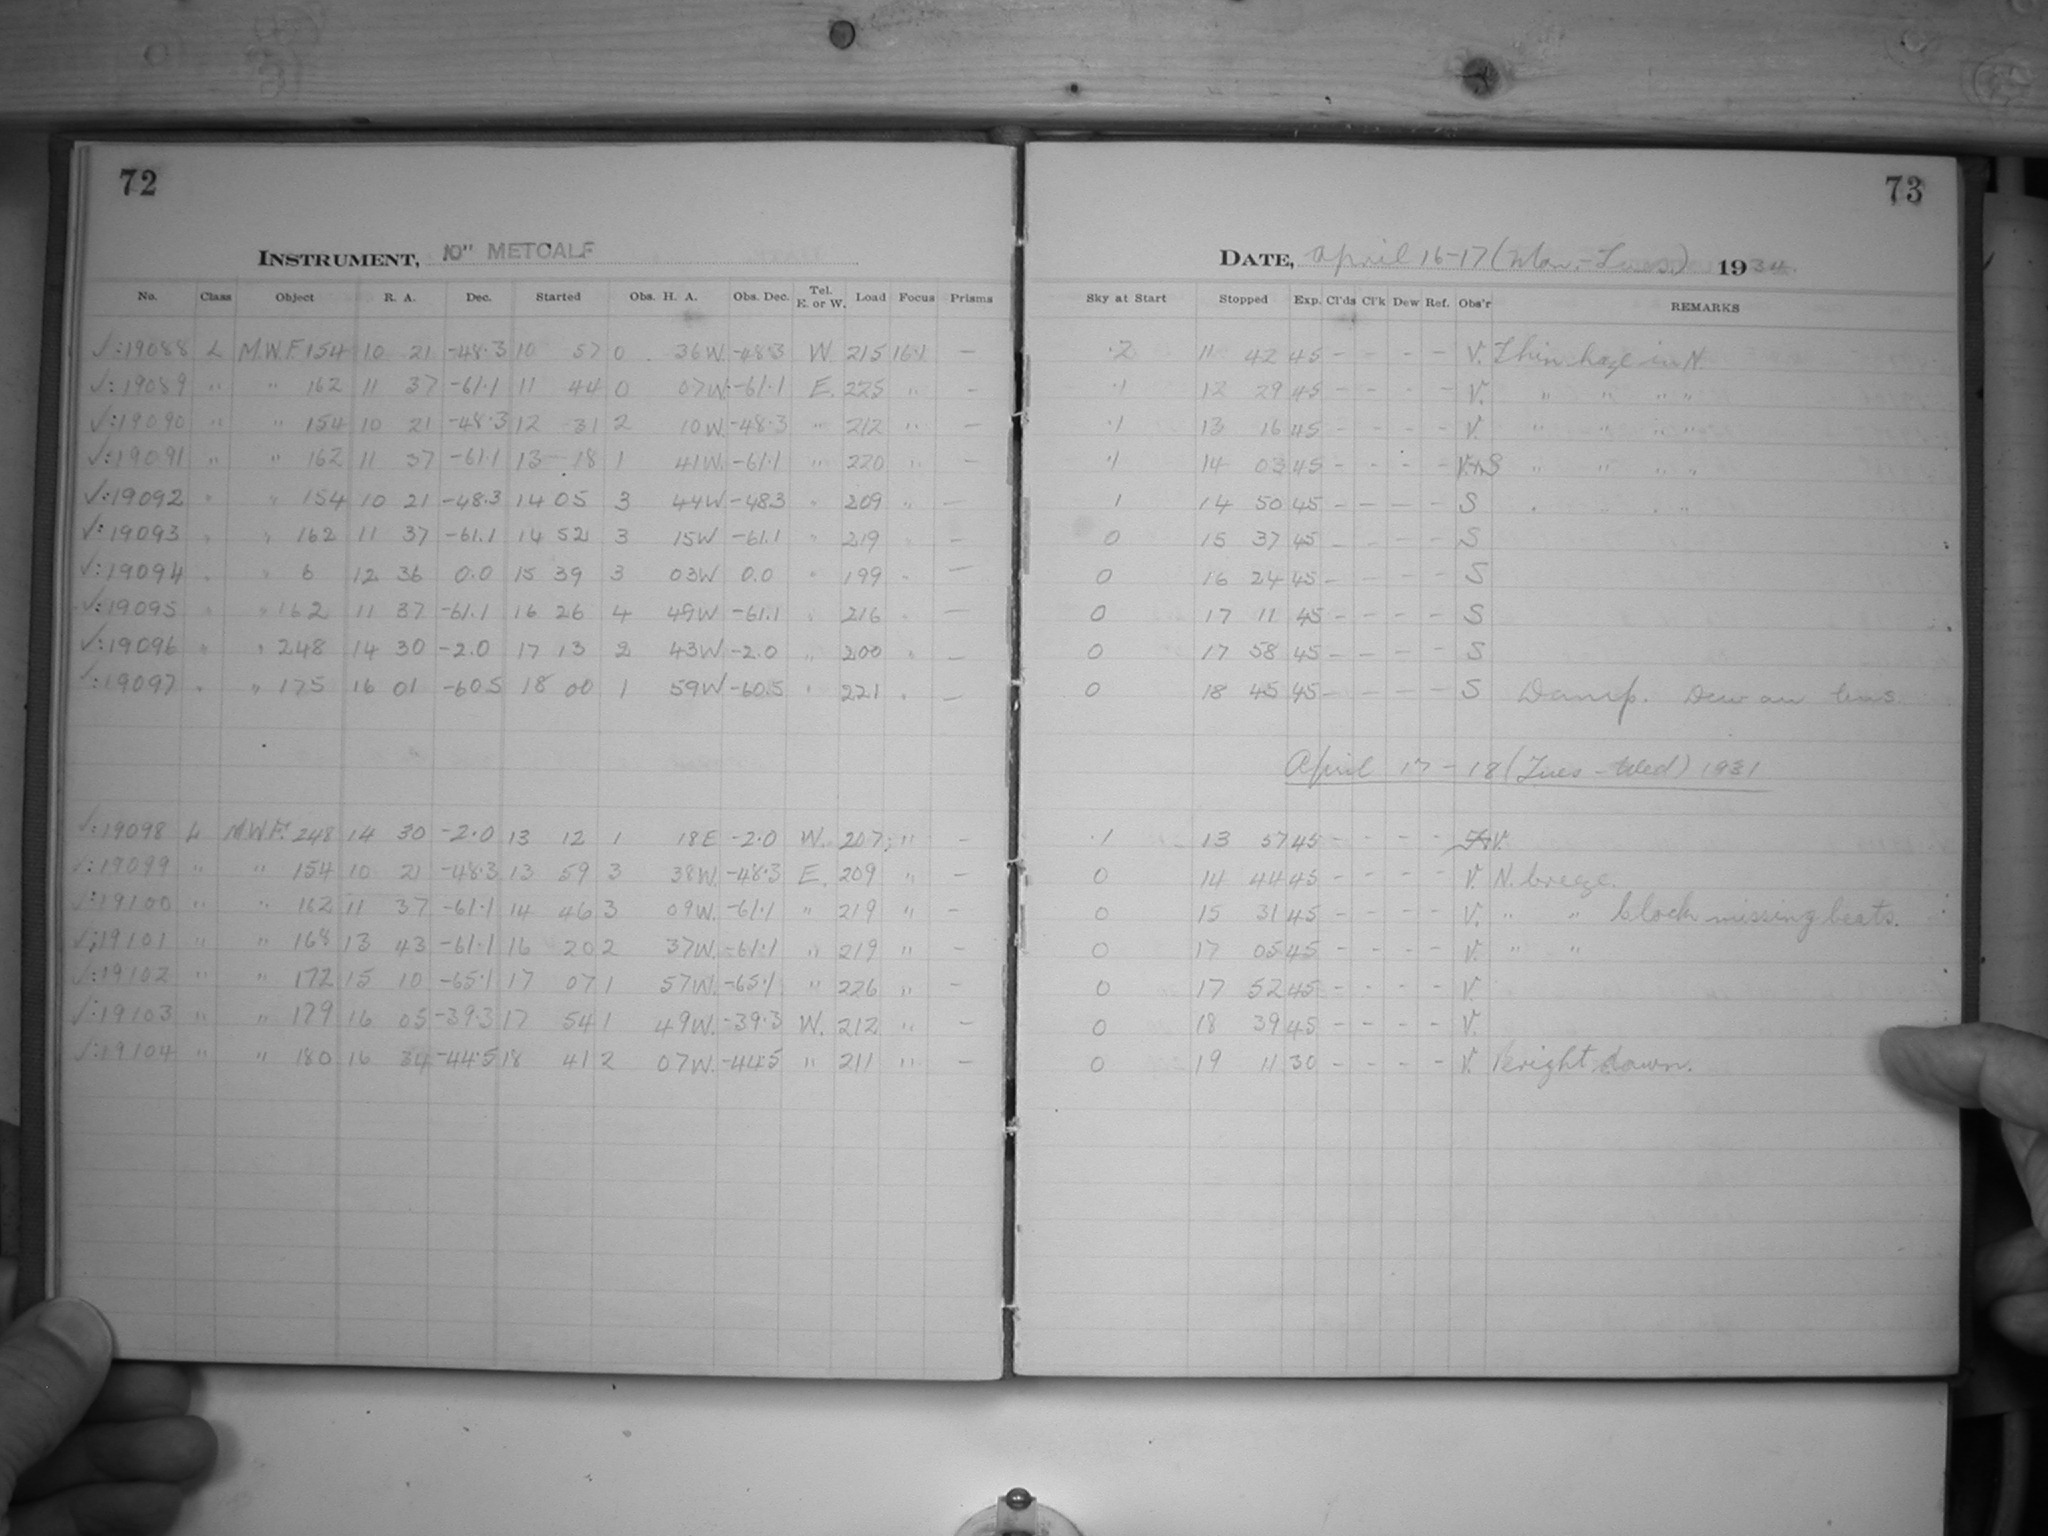 72
INSTRUMENT, 10" METCALF
No. Class Object R. A. Dec. Started Obs. H. A. Obs. Dec. Tel. E. or W. Load Focus Prisms
√:19088 L M.W.F. 154 10 21 -48.3 10 57 0 36W. -48.3 W. 215 16.1 —
√:19089 " " 162 11 37 -61.1 11 44 0 07W. -61.1 E. 225 " —
√:19090 " " 154 10 21 -48.3 12 31 2 10W. -48.3 " 212 " —
√:19091 " " 162 11 37 -61.1 13 18 1 41W. -61.1 " 220 " —
√:19092 " " 154 10 21 -48.3 14 05 3 44W -48.3 " 209 " —
√:19093 " " 162 11 37 -61.1 14 52 3 15W -61.1 " 219 " —
√:19094 " " 6 12 36 0.0 15 39 3 03W 0.0 " 199 " —
√:19095 " " 162 11 37 -61.1 16 26 4 49W -61.1 " 216 " —
√:19096 " " 248 14 30 -2.0 17 13 2 43W -2.0 " 200 " —
√:19097 " " 175 16 01 -60.5 18 00 1 59W -60.5 " 221 " —
√:19098 L M.W.F. 248 14 30 -2.0 13 12 1 18E -2.0 W. 207 " —
√:19099 " " 154 10 21 -48.3 13 59 3 38W. -48.3 E. 209 " —
√:19100 " " 162 11 37 -61.1 14 46 3 09W. -61.1 " 219 " —
√:19101 " " 168 13 43 -61.1 16 20 2 37W. -61.1 " 219 " —
√:19102 " " 172 15 10 -65.1 17 07 1 57W. -65.1 " 226 " —
√:19103 " " 179 16 05 -39.3 17 54 1 49W. -39.3 W. 212 " —
√:19104 " " 180 16 34 -44.5 18 41 2 07W. -44.5 " 211 " —
73
DATE, April 16-17 (Mon.-Tues.) 1934.
Sky at Start Stopped Exp. Cl'ds Cl'k Dew Ref. Obs'r REMARKS
.2 11 42 45 - - - - V. Thin haze in N.
.1 12 29 45 - - - - V. " " " "
.1 13 16 45 - - - - V. " " " "
.1 14 03 45 - - - - V.+S " " " "
1 14 50 45 - - - - S " " " "
0 15 37 45 - - - - S
0 16 24 45 - - - - S
0 17 11 45 - - - - S
0 17 58 45 - - - - S
0 18 45 45 - - - - S Damp. Dew on lens.
April 17-18 (Tues-Wed) 1931
.1 13 57 45 - - - - V.
0 14 44 45 - - - - V. N. breeze.
0 15 31 45 - - - - V. " " Clock missing beats.
0 17 05 45 - - - - V. " "
0 17 52 45 - - - - V.
0 18 39 45 - - - - V.
0 19 11 30 - - - - V. Bright dawn.